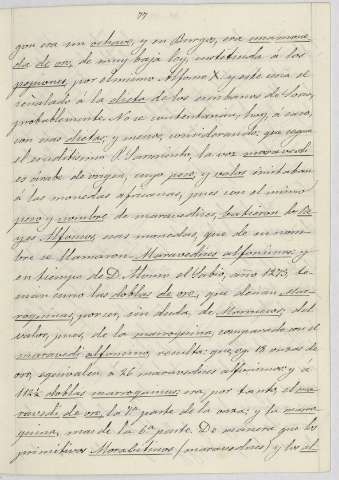 77
gon era un ochavo, y en Burgos, era una mone
da de oro, de muy baja ley, sustituida á los
pepiones, por el mismo Alfonso X: y este era el
señalado á la dieta de los
probablemente. No se contentarían, hoy, á caso,
con esas dietas, y menos, considerando: que segun
el eruditísimo P. Sarmiento, la voz maravedí
es árabe de origen, cuyo peso, y valor imitaban
á las monedas africanas, pues con el mismo
peso y nombre de maravedíes, batieron los Re
yes Alfonsos, sus monedas, que de su nom
bre se llamaron Maravedíes alfonsinos: y
en tiempo de D. Alonso el Sabio, año 1273, to
man como las doblas de oro, que
roquinas, por ser, sin duda de Marruecos; del
valor, pues, de la marroquina, comparado con el
maravedí alfonsino, resulta: que, 18 onzas de
oro, equivalen á 26 maravedíes alfonsinos: y á
112½ doblas marroquinas: era, por tanto, el ma
ravedí de oro, la 7ª parte de la onza: y la marro
quina, mas de la 6ª parte. De manera que los
primitivos Morabitinos (maravedíes) y los al